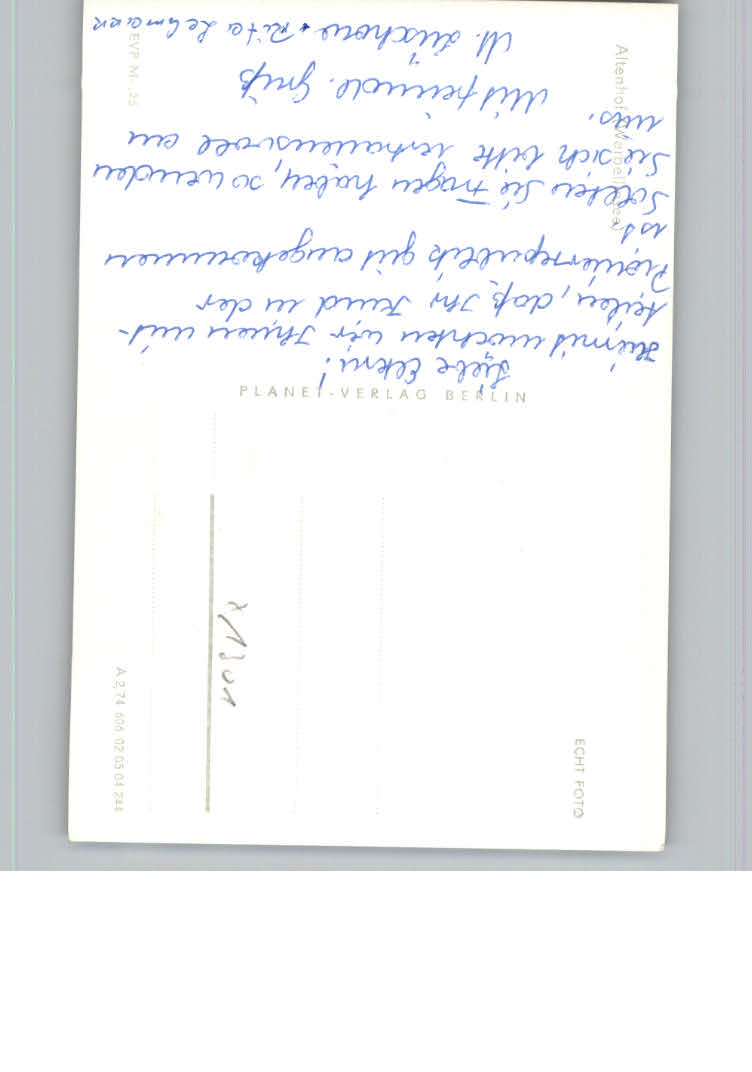 Liebe Eltern!
Hiermit möchten wir Ihnen mit-
teilen, daß Ihr Kind in der
Pionierrepublik gut angekommen
ist.
Sollten Sie Fragen haben, so wenden
Sie sich bitte vertrauensvoll an
uns.
Mit freundl. Gruß
M. Rita Lehmann
Altenhof (Werbellinsee)
EVP M -,25
PLANET-VERLAG BERLIN
ECHT FOTO
A 2,74 606 02 05 04 244